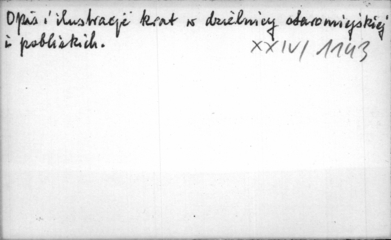 Opis i ilustracje krat w dzielnicy staromiejskiej
i pobliskich.
XXIV/1143